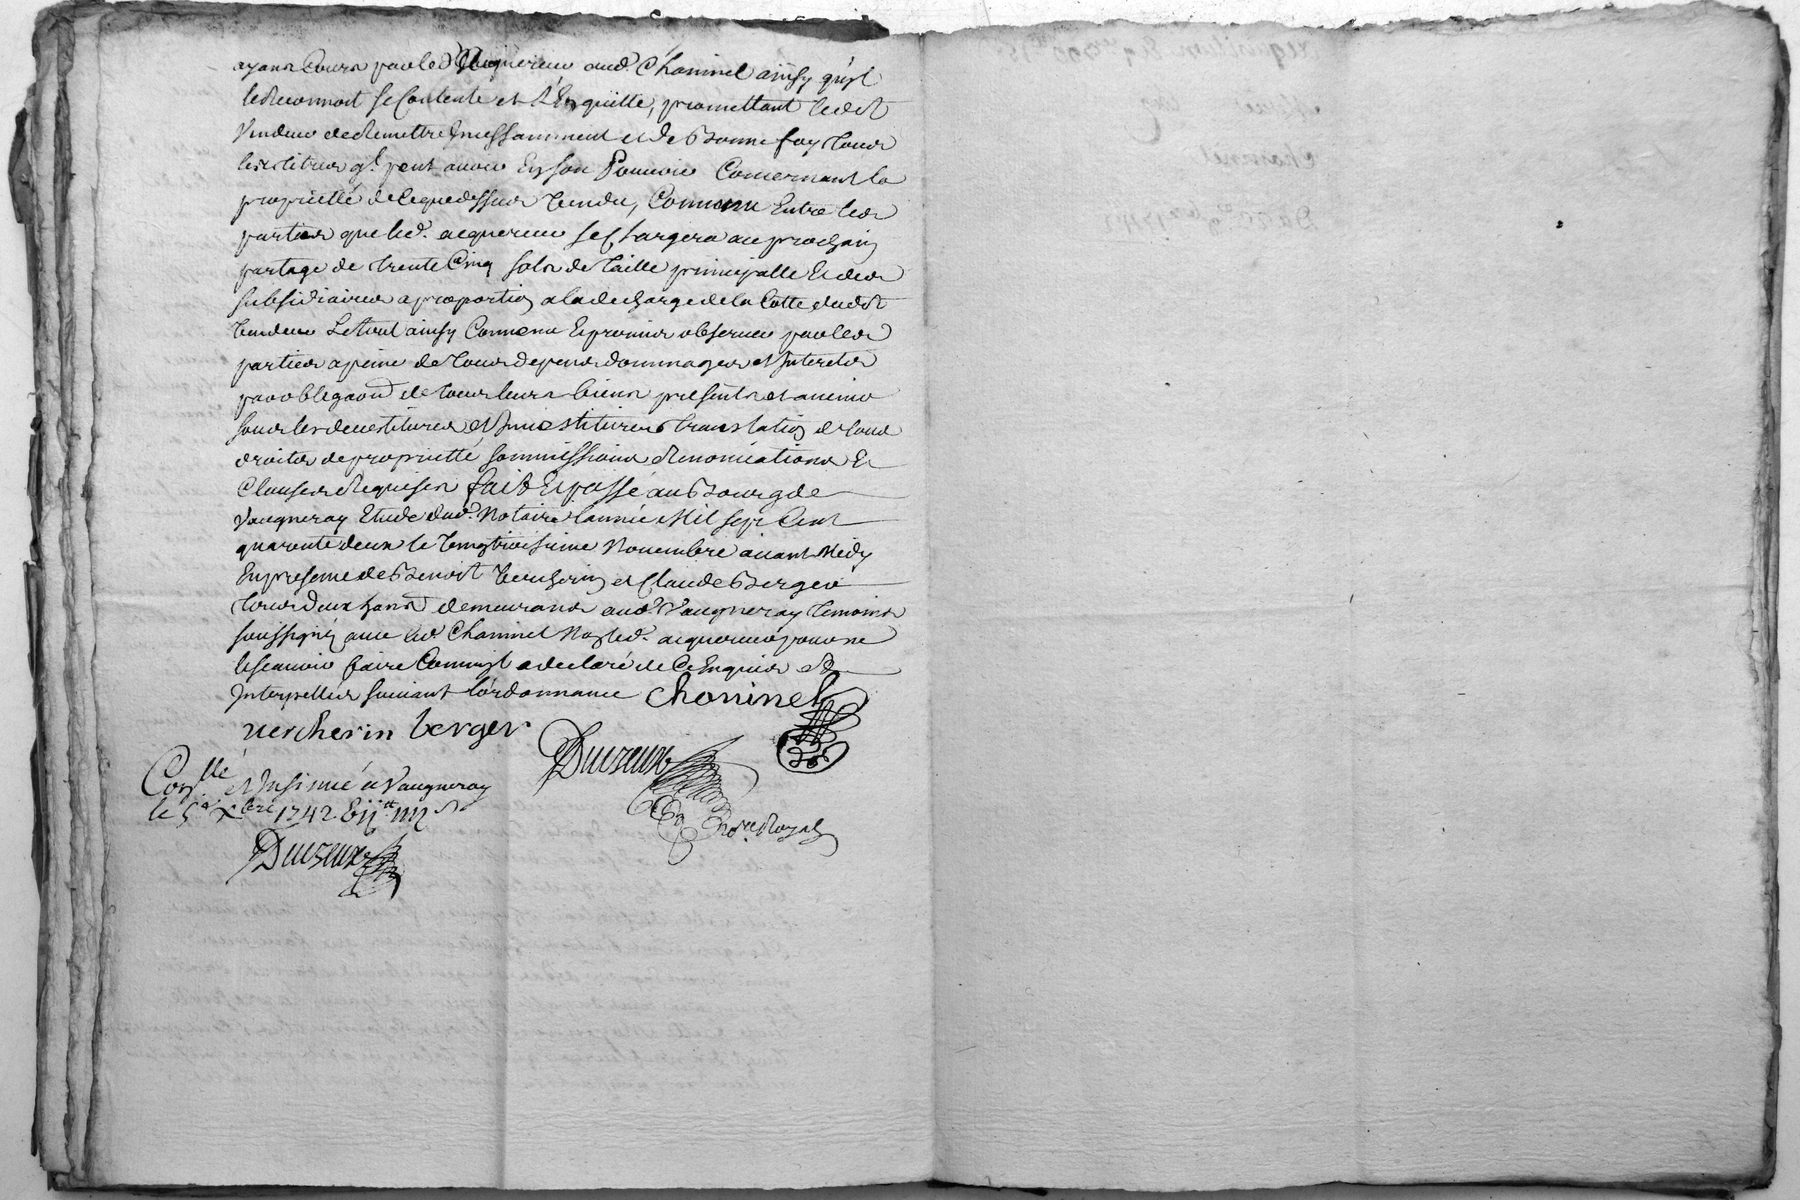 ayans cours par led acquereur aud. Chaninel ainsy qu'il
le reconnoit se contente et l'en quitte, promettant ledit
vendeur de remettre incessamment et de bonne foy tous
les titres ql. peut avoir en son pouvoir concernant la
proprietté de ce que dessus vendu, convenu entre les
parties que led. acquereur se chargera au prochain
partage de trente cinq sols de taille principalle et des
subsidiaires a proportion a la decharge de la cotte dudit
vendeur le tout ainsy convenu et promis observer par les
parties a peine de tous depens dommages et interets
par obligaon de tous leurs biens presents et avenir
sous les devestitures et investitures translation de tous
droits de proprietté sommissions renonciations et
clauses requises fait et passé au bourg de
Vaugneray Etude dud. Notaire l'année mil sept cent
quarante deux le vingt troisieme Novembre avant midy
En presence de Benoit Vercherin et Claude Berger
tous deux demeurans aud. Vaugneray temoins
soussignés avec led. Chaninel Non led. acquereur pour ne
le scavoir faire comme il a declaré de ce enquis et
Interpellés suivant l'ordonnance Chaninel
vercherin berger
Conllé et Insinué a Vaugneray
le 5e Xbre 1742.
Nore Royal